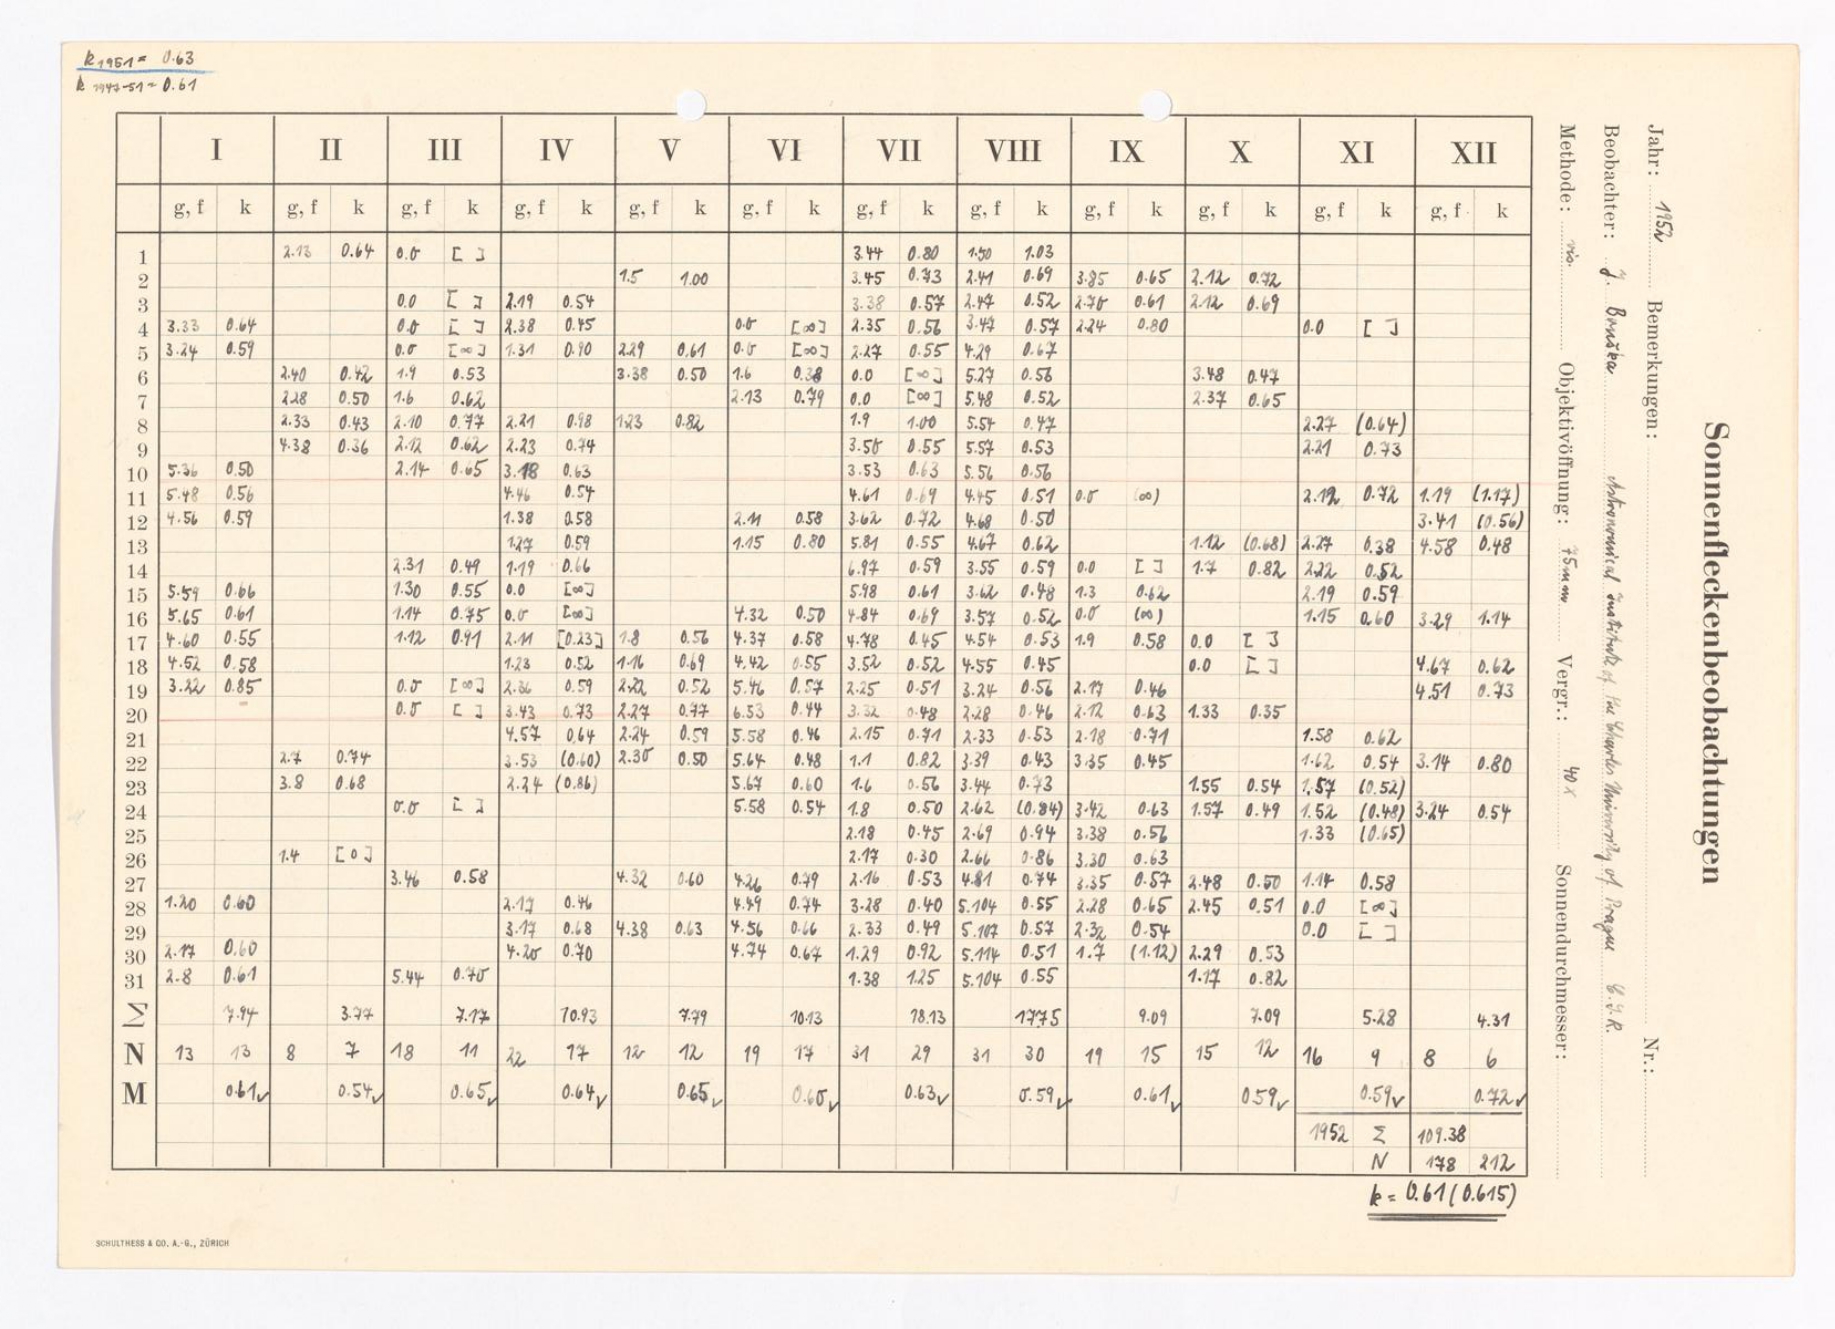 k 1951 = 0.63
k 1947-51 = 0.61
Sonnenfleckenbeobachtungen
Jahr: 1952 Bemerkungen: Nr.:
Beobachter: J. Bouška Astronomical Institute of the Charles University of Prague Č.S.R.
Methode: vis. Objektivöffnung: 75mm Vergr.: 40x Sonnendurchmesser:
I II III IV V VI VII VIII IX X XI XII
g, f k g, f k g, f k g, f k g, f k g, f k g, f k g, f k g, f k g, f k g, f k g, f k
1 2.13 0.64 0.0 [ ] 3.44 0.80 1.50 1.03
2 1.5 1.00 3.45 0.73 2.41 0.69 3.85 0.65 2.12 0.72
3 0.0 [ ] 2.19 0.54 3.38 0.57 2.47 0.52 2.70 0.61 2.12 0.69
4 3.33 0.64 0.0 [ ] 2.38 0.45 0.0 [∞] 2.35 0.56 3.47 0.57 2.24 0.80 0.0 [ ]
5 3.24 0.59 0.0 [∞] 1.31 0.90 2.29 0.61 0.0 [∞] 2.27 0.55 4.29 0.67
6 2.40 0.42 1.9 0.53 3.38 0.50 1.6 0.38 0.0 [∞] 5.27 0.56 3.48 0.47
7 2.28 0.50 1.6 0.62 2.13 0.79 0.0 [∞] 5.48 0.52 2.37 0.65
8 2.33 0.43 2.10 0.77 2.21 0.98 1.23 0.82 1.9 1.00 5.54 0.47 2.27 (0.64)
9 4.38 0.36 2.12 0.62 2.23 0.74 3.50 0.55 5.57 0.53 2.21 0.73
10 5.36 0.50 2.14 0.65 3.18 0.63 3.53 0.63 5.56 0.56
11 5.48 0.56 4.46 0.54 4.61 0.69 4.45 0.51 0.0 (∞) 2.19 0.72 1.19 (1.17)
12 4.56 0.59 1.38 0.58 2.11 0.58 3.62 0.72 4.68 0.50 3.41 (0.56)
13 1.27 0.59 1.15 0.80 5.81 0.55 4.67 0.62 1.12 (0.68) 2.27 0.38 4.58 0.48
14 2.31 0.49 1.19 0.66 6.97 0.59 3.55 0.59 0.0 [ ] 1.7 0.82 2.22 0.52
15 5.59 0.66 1.30 0.55 0.0 [∞] 5.98 0.61 3.62 0.48 1.3 0.62 2.19 0.59
16 5.65 0.61 1.14 0.75 0.0 [∞] 4.32 0.50 4.84 0.69 3.57 0.52 0.0 (∞) 1.15 0.60 3.29 1.14
17 4.60 0.55 1.12 0.91 2.11 [0.23] 1.8 0.56 4.37 0.58 4.78 0.45 4.54 0.53 1.9 0.58 0.0 [ ]
18 4.52 0.58 1.23 0.52 1.16 0.69 4.42 0.55 3.52 0.52 4.55 0.45 0.0 [ ] 4.67 0.62
19 3.22 0.85 0.0 [∞] 2.36 0.59 2.22 0.52 5.46 0.57 2.25 0.51 3.24 0.56 2.17 0.46 4.51 0.73
20 0.0 [ ] 3.43 0.73 2.27 0.77 6.53 0.44 3.32 0.48 2.28 0.46 2.12 0.63 1.33 0.35
21 4.57 0.64 2.24 0.59 5.58 0.46 2.15 0.71 2.33 0.53 2.18 0.71 1.58 0.62
22 2.7 0.74 3.53 (0.60) 2.30 0.50 5.64 0.48 1.1 0.82 3.39 0.43 3.35 0.45 1.62 0.54 3.14 0.80
23 3.8 0.68 2.24 (0.86) 5.67 0.60 1.6 0.56 3.44 0.73 1.55 0.54 1.57 (0.52)
24 0.0 [ ] 5.58 0.54 1.8 0.50 2.62 (0.84) 3.42 0.63 1.57 0.49 1.52 (0.48) 3.24 0.54
25 2.18 0.45 2.69 0.94 3.38 0.56 1.33 (0.65)
26 1.4 [0] 2.17 0.30 2.66 0.86 3.30 0.63
27 3.46 0.58 4.32 0.60 4.26 0.79 2.16 0.53 4.81 0.74 3.35 0.57 2.48 0.50 1.14 0.58
28 1.20 0.60 2.17 0.46 4.49 0.74 3.28 0.40 5.104 0.55 2.28 0.65 2.45 0.51 0.0 [∞]
29 3.17 0.68 4.38 0.63 4.56 0.66 2.33 0.49 5.107 0.57 2.32 0.54 0.0 [ ]
30 2.17 0.60 4.20 0.70 4.74 0.67 1.29 0.92 5.114 0.51 1.7 (1.12) 2.29 0.53
31 2.8 0.61 5.44 0.70 1.38 1.25 5.104 0.55 1.17 0.82
Σ 7.94 3.77 7.17 10.93 7.79 10.13 18.13 17.75 9.09 7.09 5.28 4.31
N 13 13 8 7 18 11 22 17 12 12 19 17 31 29 31 30 19 15 15 12 16 9 8 6
M 0.61✓ 0.54✓ 0.65✓ 0.64✓ 0.65✓ 0.60✓ 0.63✓ 0.59✓ 0.61✓ 0.59✓ 0.59✓ 0.72✓
1952 Σ 109.38
N 178 212
k = 0.61 (0.615)
SCHULTHESS & CO. A.-G., ZÜRICH